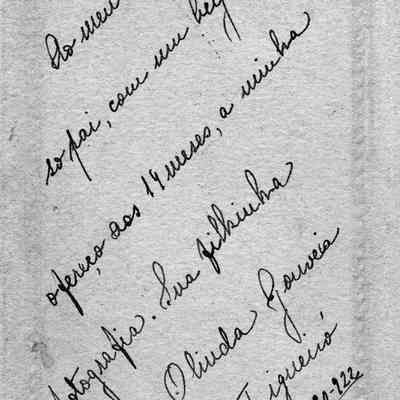 Ao meu
so pai, com um beij
ofereço, aos 14 meses, a minha
fotografia. Sua filhinha
Olinda Gouveia
Figueiró